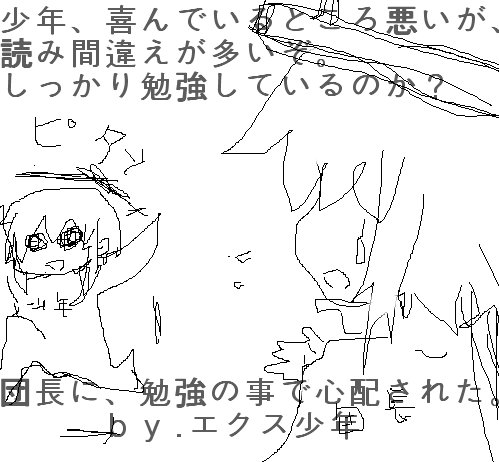 少年、喜んでいるところ悪いが、
読み間違えが多いぞ。
しっかり勉強しているのか？
少年
団長
団長に、勉強の事で心配された。
by.エクス少年